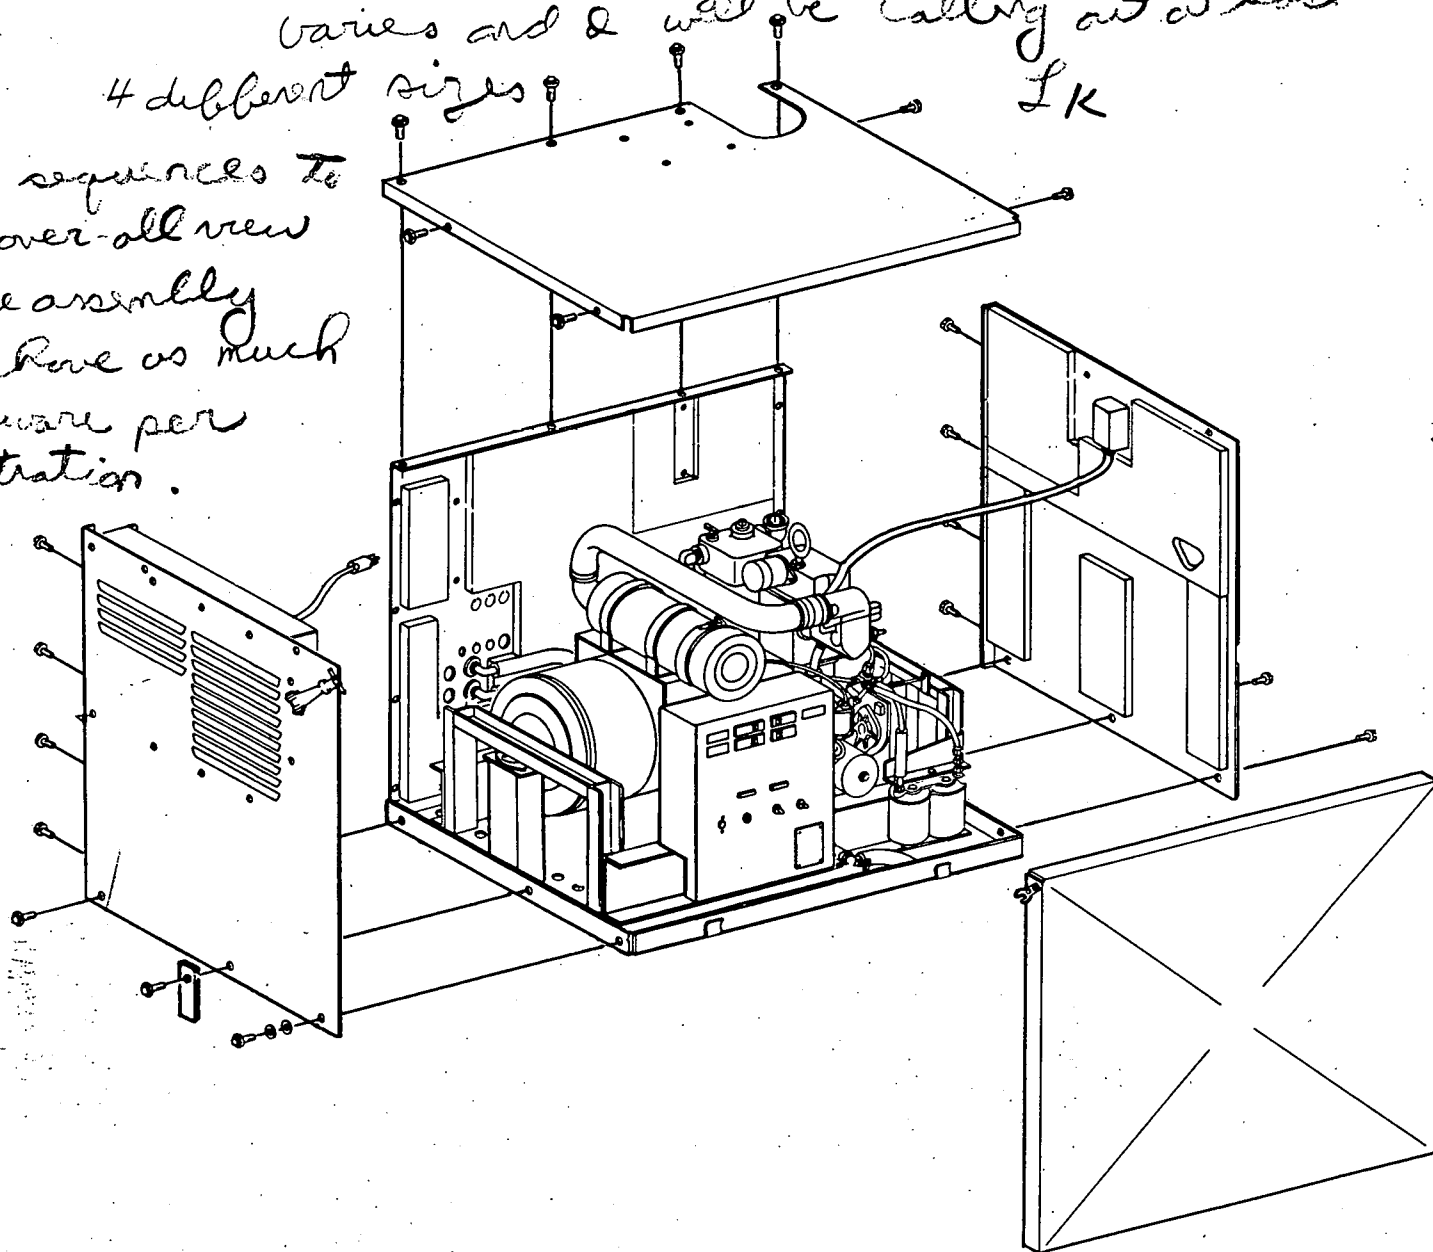 varies and I will be calling out at least
4 different sizes
LK
sequences to
over-all view
e assembly
have as much
ware per
tration.